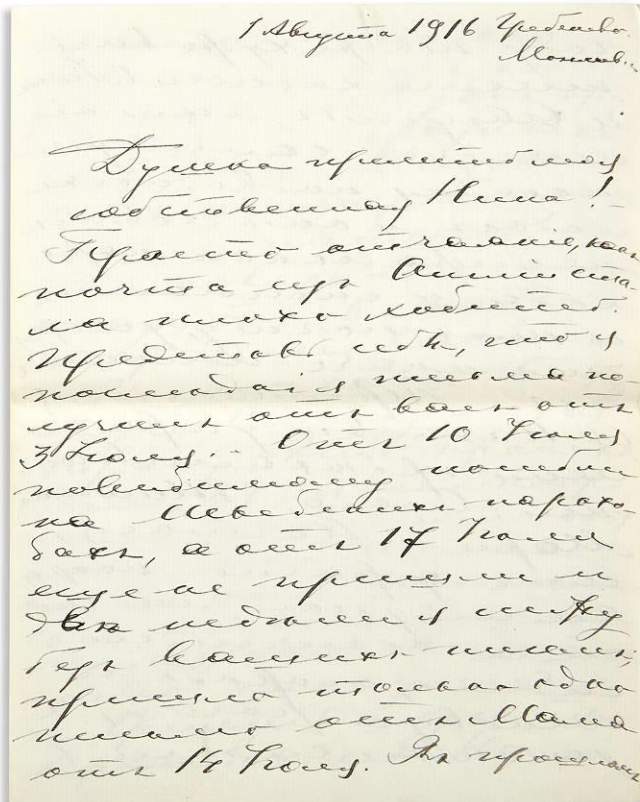 1 Августа 1916
Могилев..
Душка
собственная Нина!
Просто отчаянiе, какъ
почта изъ Англiи ста-
ла плохо ходить.
Представь себѣ, что я
последнiя письма по
лучилъ отъ васъ отъ
3 Iюля.. Отъ 10 Iюля
повидимому погибли
на Шведскихъ парохо-
дахъ, а отъ 17 Iюля
еще не пришли и
двѣ недѣли я сижу
безъ вашихъ писемъ,
пришло только одно
письмо отъ Мама
отъ 14 Iюля. Въ прошломъ